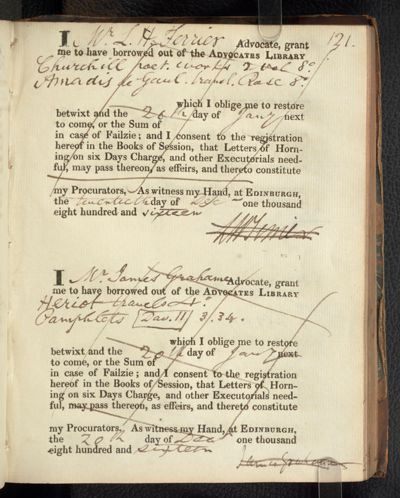 121.
I Mr L. H. Ferrier Advocate, grant
me to have borrowed out of the ADVOCATES LIBRARY
Churchill poet. works 2 vol 8o.
Amadis de Gaul. transl. Rose 8o.
which I oblige me to restore
betwixt and the 20th day of Jany next
to come, or the Sum of
in case of Failzie; and I consent to the registration
hereof in the Books of Session, that Letters of Horn-
ing on six Days Charge, and other Executorials need-
ful, may pass thereon, as effeirs, and thereto constitute
my Procurators, As witness my Hand, at EDINBURGH,
the twentieth day of Dec one thousand
eight hundred and sixteen
I Mr James Grahame Advocate, grant
me to have borrowed out of the ADVOCATES LIBRARY
Heriot travels 4o.
Pamphlets [Dav. II] 3/. 34.
which I oblige me to restore
betwixt and the 20th day of Jany next
to come, or the Sum of
in case of Failzie; and I consent to the registration
hereof in the Books of Session, that Letters of Horn-
ing on six Days Charge, and other Executorials need-
ful, may pass thereon, as effeirs, and thereto constitute
my Procurators, As witness my Hand, at EDINBURGH,
the 20th day of Dec one thousand
eight hundred and sixteen
James Grahame